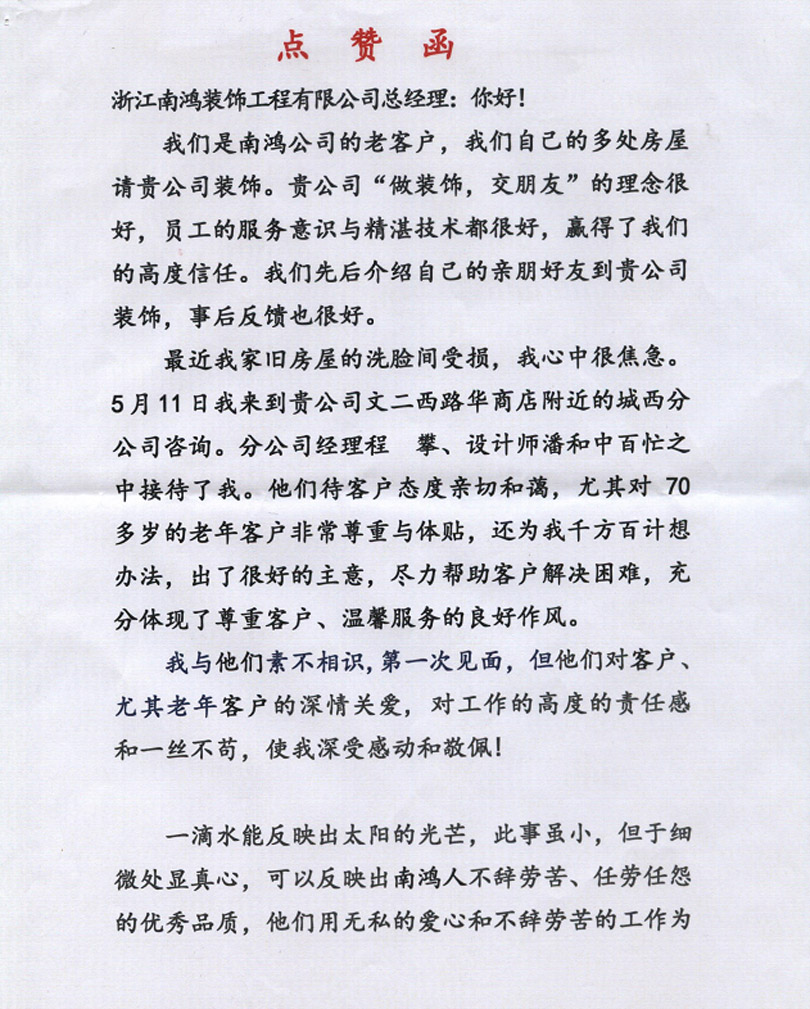 点 赞 函
浙江南鸿装饰工程有限公司总经理：你好！
我们是南鸿公司的老客户，我们自己的多处房屋
请贵公司装饰。贵公司“做装饰，交朋友”的理念很
好，员工的服务意识与精湛技术都很好，赢得了我们
的高度信任。我们先后介绍自己的亲朋好友到贵公司
装饰，事后反馈也很好。
最近我家旧房屋的洗脸间受损，我心中很焦急。
5月11日我来到贵公司文二西路华商店附近的城西分
公司咨询。分公司经理程　攀、设计师潘和中百忙之
中接待了我。他们待客户态度亲切和蔼，尤其对 70
多岁的老年客户非常尊重与体贴，还为我千方百计想
办法，出了很好的主意，尽力帮助客户解决困难，充
分体现了尊重客户、温馨服务的良好作风。
我与他们素不相识,第一次见面，但他们对客户、
尤其老年客户的深情关爱，对工作的高度的责任感
和一丝不苟，使我深受感动和敬佩！
一滴水能反映出太阳的光芒，此事虽小，但于细
微处显真心，可以反映出南鸿人不辞劳苦、任劳任怨
的优秀品质，他们用无私的爱心和不辞劳苦的工作为